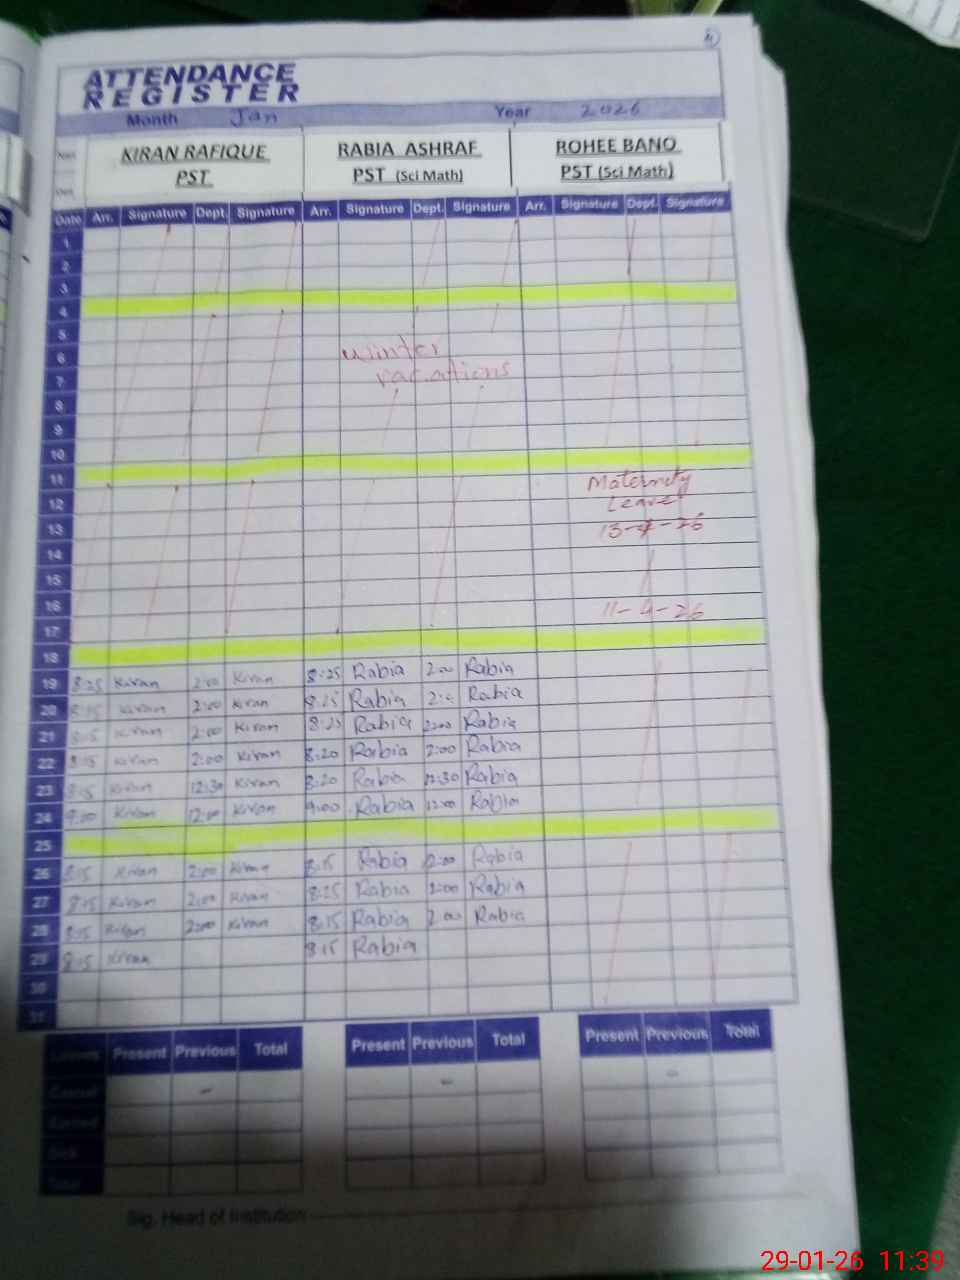 ATTENDANCE
REGISTER
Month Jan Year 2026
KIRAN RAFIQUE RABIA ASHRAF ROHEE BANO
PST PST (Sci Math) PST (Sci Math)
Date Arr. Signature Dept. Signature Arr. Signature Dept. Signature Arr. Signature Dept. Signature
1
2
3
4
5
6 winter
7 vacations
8
9
10
11 Maternity
12 Leave
13
14
15
16 11-4-26
17
18
19 8:25 Kiran 2:00 Kiran 8:25 Rabia 2:00 Rabia
20 Kiran 2:00 Kiran 8:25 Rabia Rabia
21 Kiran 2:00 Kiran 8:25 Rabia 2:00 Rabia
22 8:15 Kiran 2:00 Kiran 8:20 Rabia 2:00 Rabia
23 8:15 Kiran 12:30 Kiran 8:20 Rabia 12:30 Rabia
24 9:00 Kiran 12:00 Kiran 9:00 Rabia 12:00 Rabia
25
26 8:15 Kiran 2:00 Kiran 8:15 Rabia 2:00 Rabia
27 8:15 Kiran 2:00 Kiran 8:25 Rabia 2:00 Rabia
28 8:15 Kiran 2:00 Kiran 8:15 Rabia 2:00 Rabia
29 8:15 Kiran 8:15 Rabia
30
31
Leaves Present Previous Total Present Previous Total Present Previous Total
Casual - - -
Earned
Sick
Total
Sig. Head of Institution
29-01-26 11:39